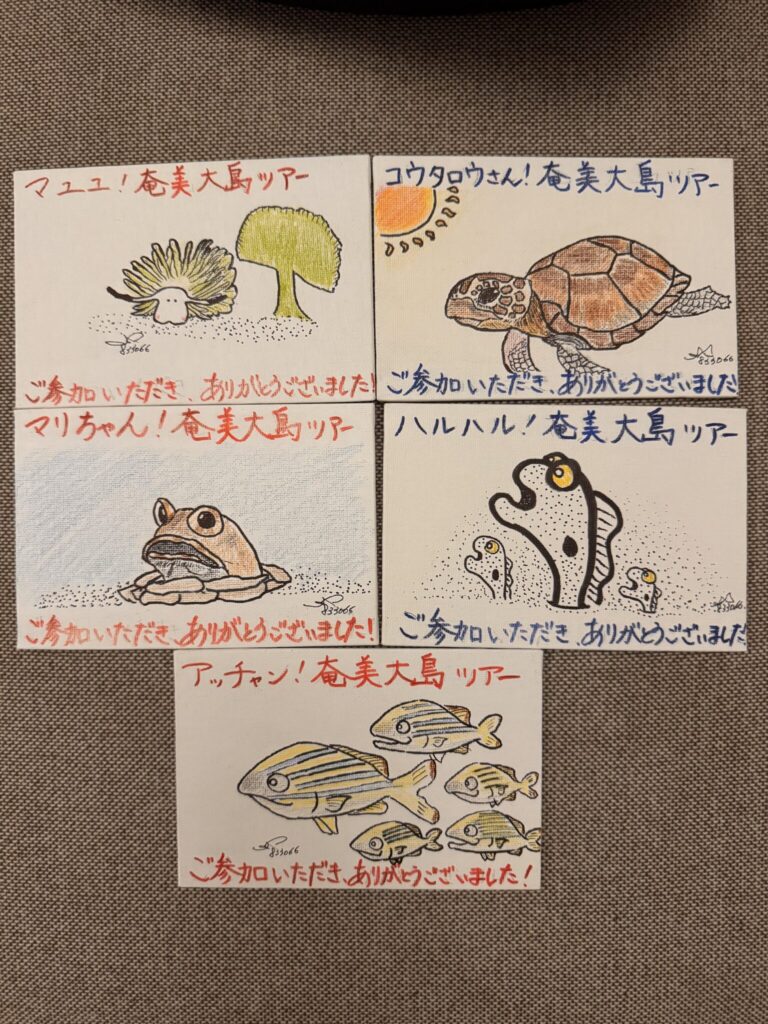 マユユ！奄美大島ツアー
833066
ご参加いただき、ありがとうございました！
コウタロウさん！奄美大島ツアー
833066
ご参加いただき、ありがとうございました！
マリちゃん！奄美大島ツアー
833066
ご参加いただき、ありがとうございました！
ハルハル！奄美大島ツアー
833066
ご参加いただき、ありがとうございました
アッチャン！奄美大島ツアー
833066
ご参加いただき、ありがとうございました！